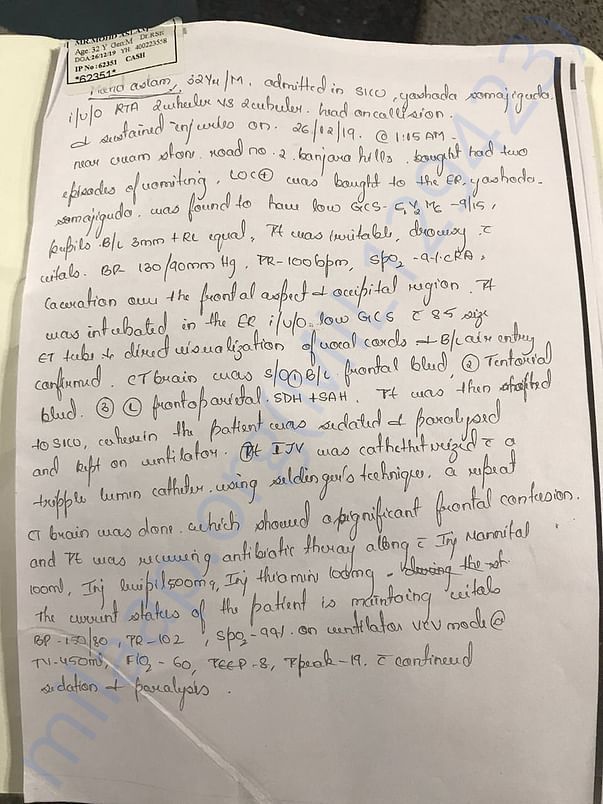 MR.MOHD ASLAM
Age: 32 Y Gen:M Dr.RSR
DOA:26/12/19 YH 400223558
IP No : 62351 CASH
*62351*
Mohd aslam, 32yr/M. admitted in SICU, yashoda somajiguda.
i/v/o RTA 2wheeler vs 2wheeler. head on collision.
& sustained injuries on. 26/12/19. @ 1:15 AM -
near cream stone. road no. 2. banjara hills. bought had two
episodes of vomiting. LOC⊕ was bought to the ER. yashoda-
somajiguda. was found to have low GCS- E1V2M6 -9/15,
pupils. B/L 3mm + RL equal, Pt was irritable, drowsy. c̄
vitals. BP 130/90mm Hg. PR-100bpm, SpO2 -94.cRA,
laceration over the frontal aspect & occipital region. Pt
was intubated in the ER i/v/o. low GCS c̄ 8.5 size
ET tube & direct visualization of vocal cords & B/L air entry
confirmed. CT brain was S/O ① B/L. frontal bleed, ② Tentorial
bleed. ③ Ⓛ frontoparietal. SDH + SAH. Pt was then shifted
to SICU, wherein the patient was sedated & paralysed
and kept on ventilator. IJV was cathetherized c̄ a
tripple lumin catheter. using seldinger's technique. a repeat
CT brain was done. which showed a significant frontal contusion.
and Pt was recieving antibiotic theray along c̄ Inj Mannital
100ml, Inj levipil 500mg, Inj thiamin 100mg -
The current status of the patient is maintaing vitals
BP -130/80, PR-102, SpO2-99%. on ventilator VCV mode @
TV-450ml, FiO2 - 60, PEEP-8, Ppeak-19. c̄ contineud
sedation & paralysis.